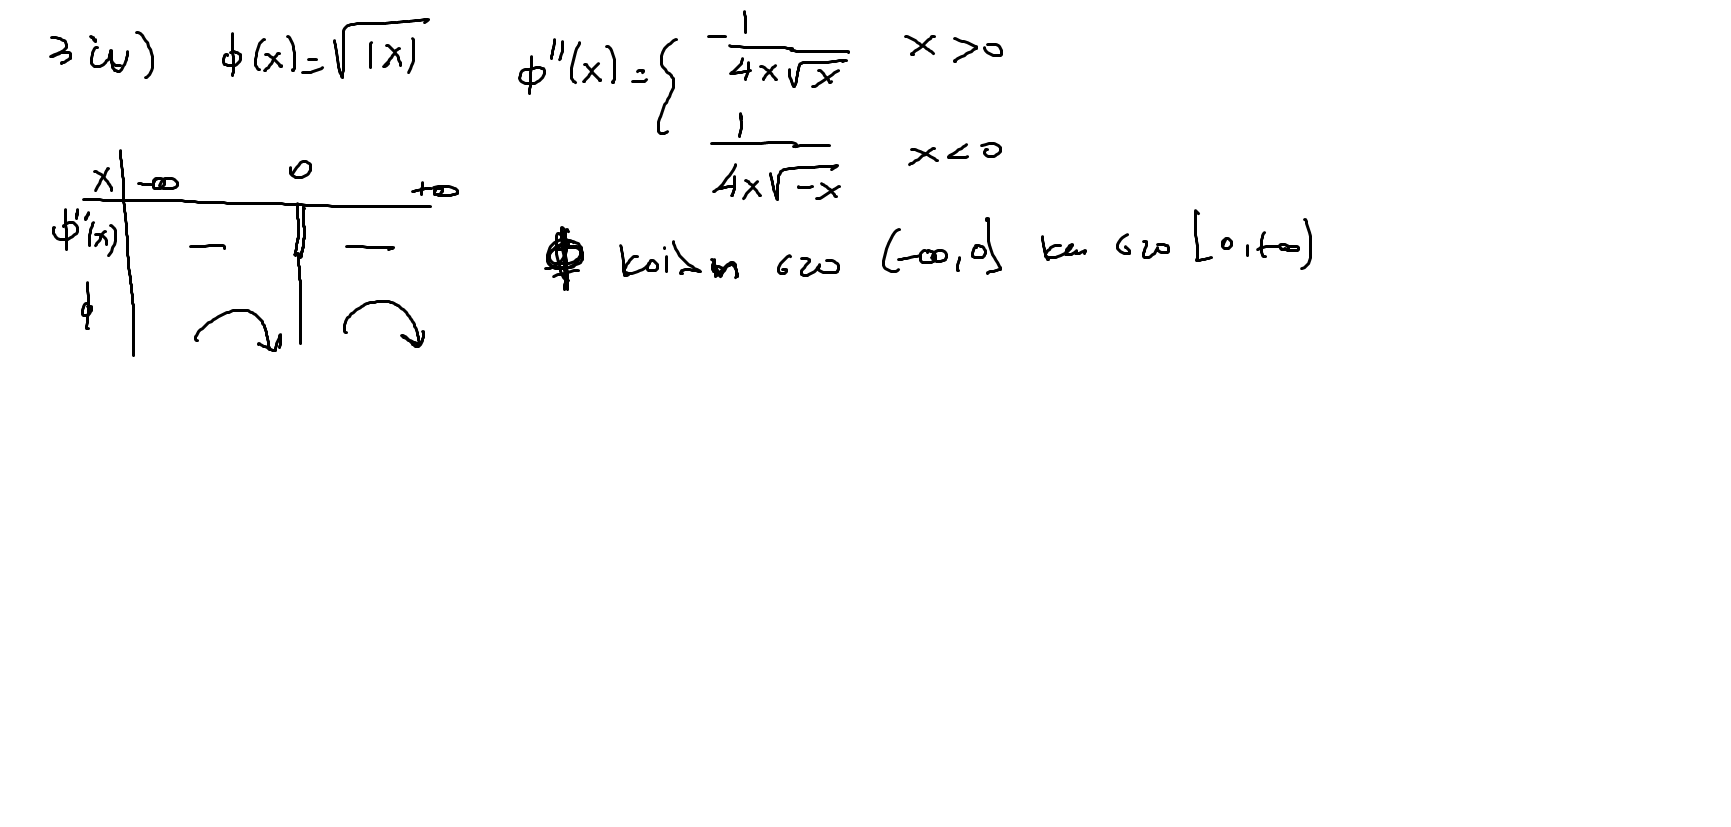 3 iv) φ(x)=√|x| φ''(x)= { -1/(4x√x) x>0
1/(4x√-x) x<0
x -∞ 0 +∞
φ''(x) - -
φ κοίλη στο (-∞,0] και στο [0,+∞)
φ